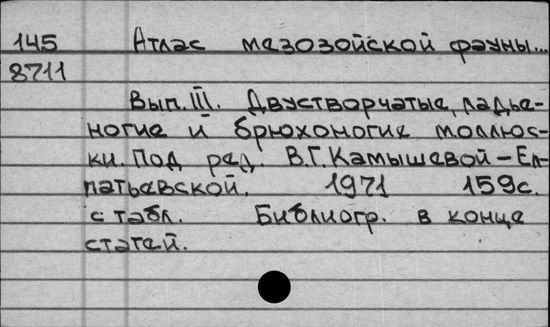 145 Атлас мезозойской фауны...
8711
Вып. III. Двустворчатые, ладье-
ногие и брюхоногие моллюс-
ки. Под ред. В.Г. Камышевой-Ел-
патьевской. 1971 159с.
с табл. Библиогр. в конце
статей.